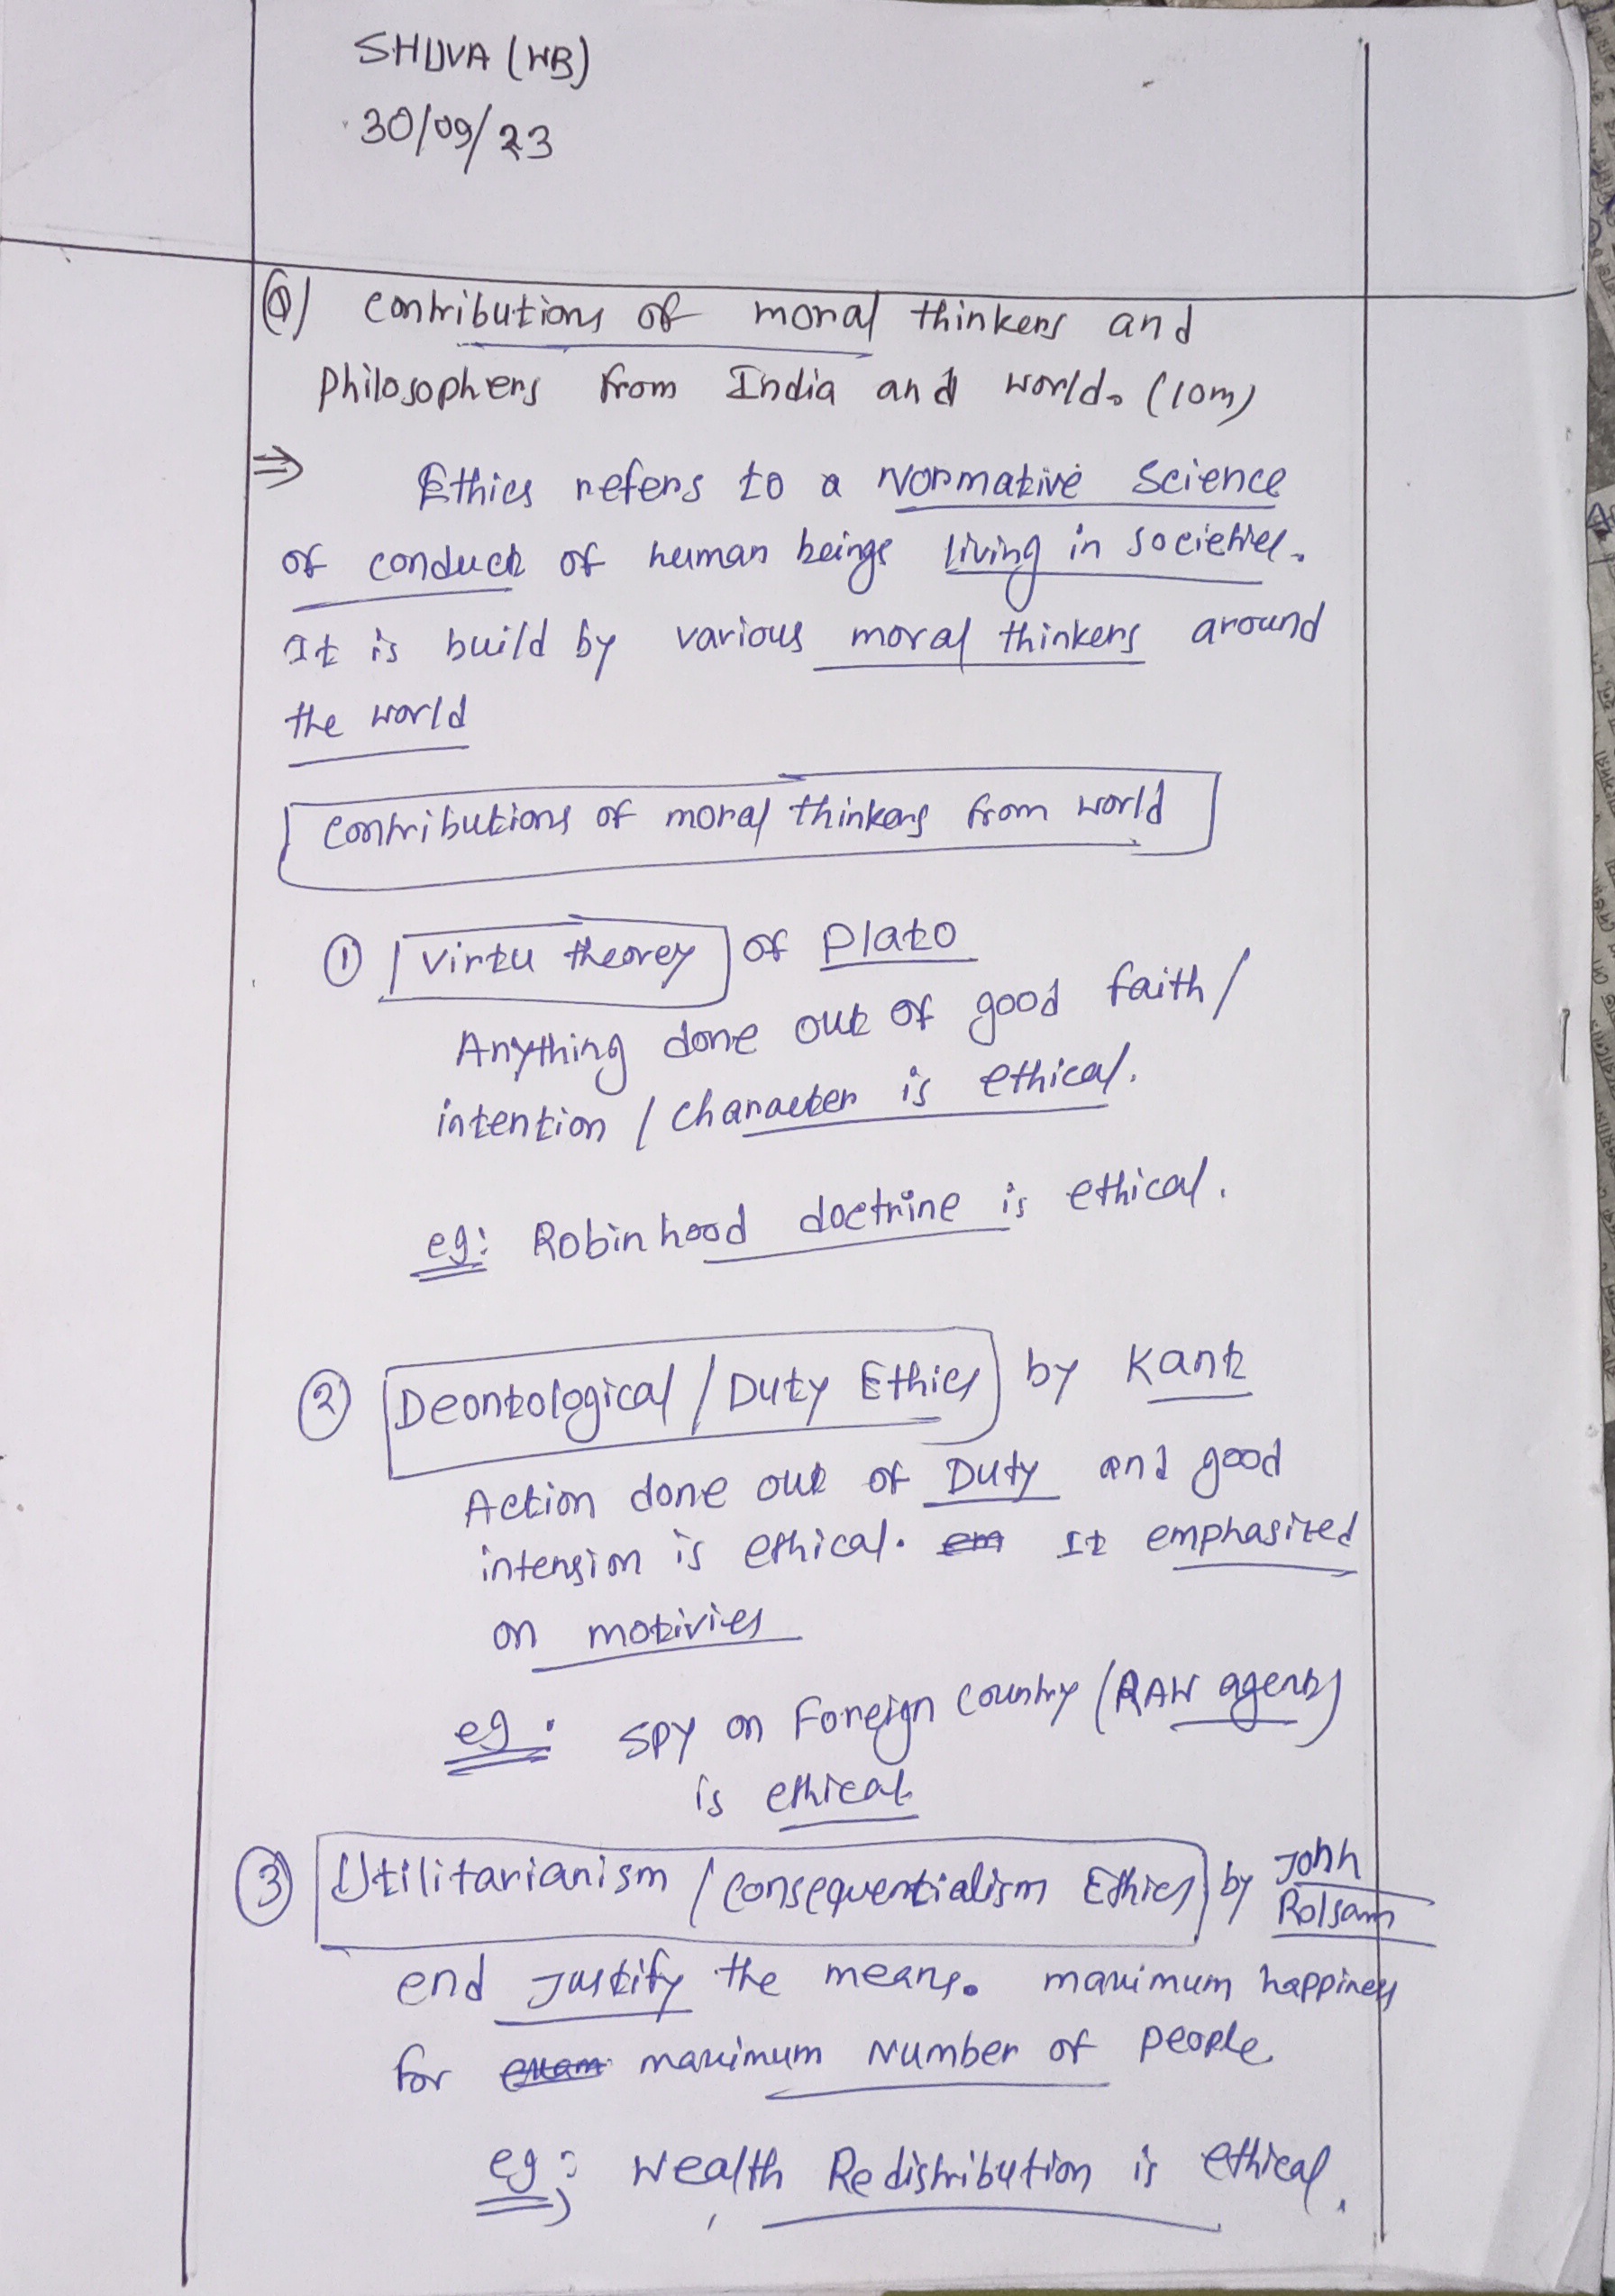 SHUVA (WB)
30/09/23
Q) contributions of moral thinkers and
Philosophers from India and world. (10m)
⇒ Ethics refers to a Normative Science
of conduct of human beings living in societies.
It is build by various moral thinkers around
the world
Contributions of moral thinkers from world
① Virtu theorey of Plato
Anything done out of good faith /
intention / character is ethical.
eg: Robinhood doctrine is ethical.
② Deontological / Duty Ethics by Kant
Action done out of Duty and good
intension is ethical. em It emphasized
on motivies
eg: SPY on Foreign country (RAW agents)
is ethical.
③ Utilitarianism / Consequentialism Ethics by John
Rolsam
end Justify the means. maximum happiness
for exam maximum Number of people
eg: Wealth Redistribution is ethical.